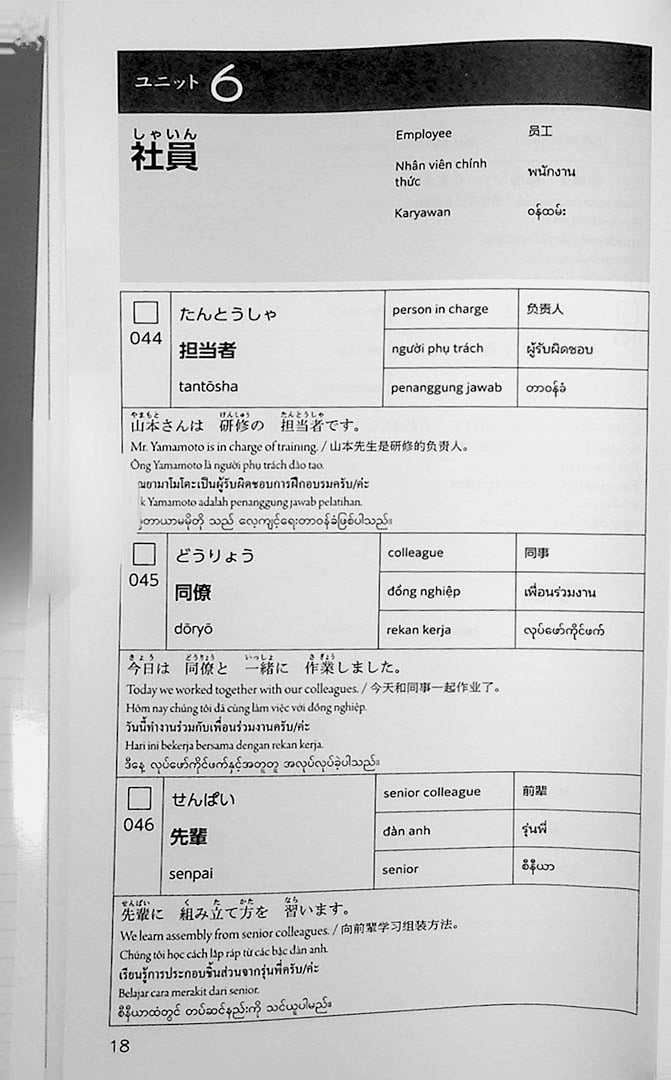 ユニット 6
しゃいん
社員
Employee
员工
Nhân viên chính thức
พนักงาน
Karyawan
ဝန်ထမ်း
044
たんとうしゃ
担当者
tantōsha
person in charge
负责人
người phụ trách
ผู้รับผิดชอบ
penanggung jawab
တာဝန်ခံ
やまもと けんしゅう たんとうしゃ
山本さんは 研修の 担当者です。
Mr. Yamamoto is in charge of training. / 山本先生是研修的负责人。
Ông Yamamoto là người phụ trách đào tạo.
ณยามาโมโตะเป็นผู้รับผิดชอบการฝึกอบรมครับ/ค่ะ
k Yamamoto adalah penanggung jawab pelatihan.
တာယာမမိုတို သည် လေ့ကျင့်ရေးတာဝန်ခံဖြစ်ပါသည်။
045
どうりょう
同僚
dōryō
colleague
同事
đồng nghiệp
เพื่อนร่วมงาน
rekan kerja
လုပ်ဖော်ကိုင်ဖက်
きょう どうりょう いっしょ さぎょう
今日は 同僚と 一緒に 作業しました。
Today we worked together with our colleagues. / 今天和同事一起作业了。
Hôm nay chúng tôi đã cùng làm việc với đồng nghiệp.
วันนี้ทำงานร่วมกับเพื่อนร่วมงานครับ/ค่ะ
Hari ini bekerja bersama dengan rekan kerja.
ဒီနေ့ လုပ်ဖော်ကိုင်ဖက်နှင့်အတူတူ အလုပ်လုပ်ခဲ့ပါသည်။
046
せんぱい
先輩
senpai
senior colleague
前辈
đàn anh
รุ่นพี่
senior
စီနီယာ
せんぱい く た かた なら
先輩に 組み立て方を 習います。
We learn assembly from senior colleagues. / 向前辈学习组装方法。
Chúng tôi học cách lắp ráp từ các bậc đàn anh.
เรียนรู้การประกอบชิ้นส่วนจากรุ่นพี่ครับ/ค่ะ
Belajar cara merakit dari senior.
စီနီယာထံတွင် တပ်ဆင်နည်းကို သင်ယူပါမည်။
18